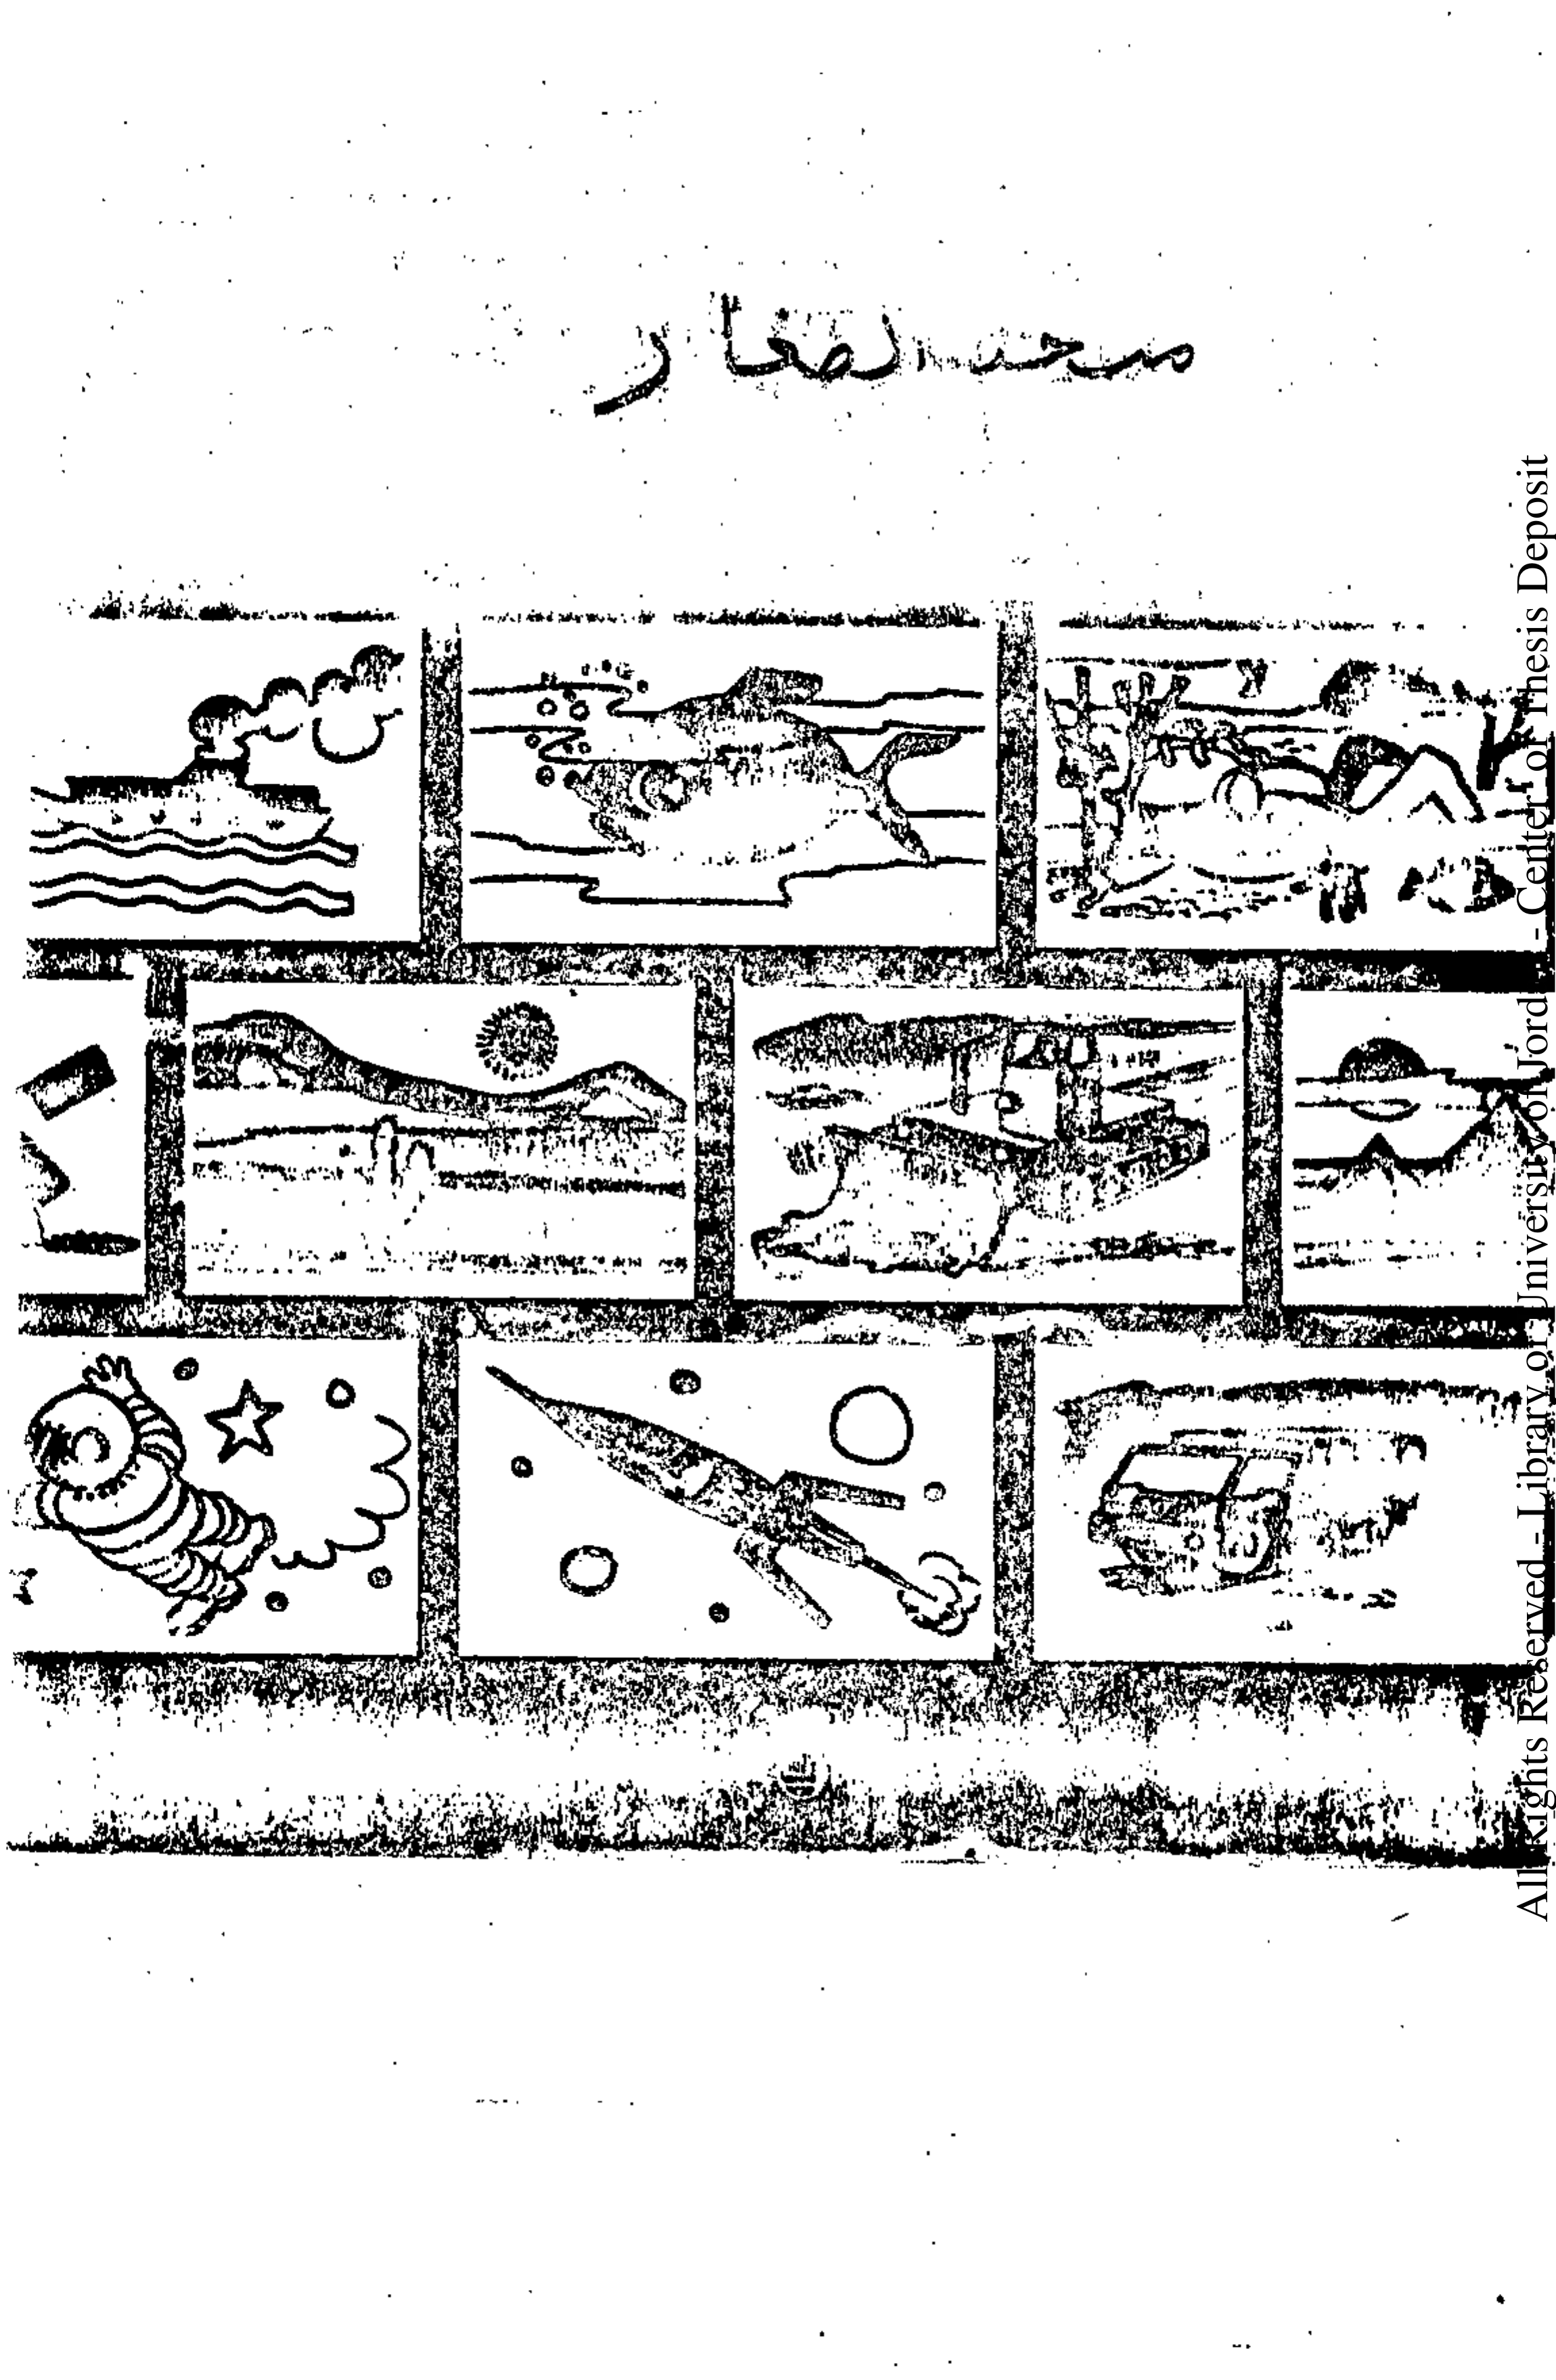 الصغار
All Rights Reserved - Library of University of Jordan - Center of Thesis Deposit